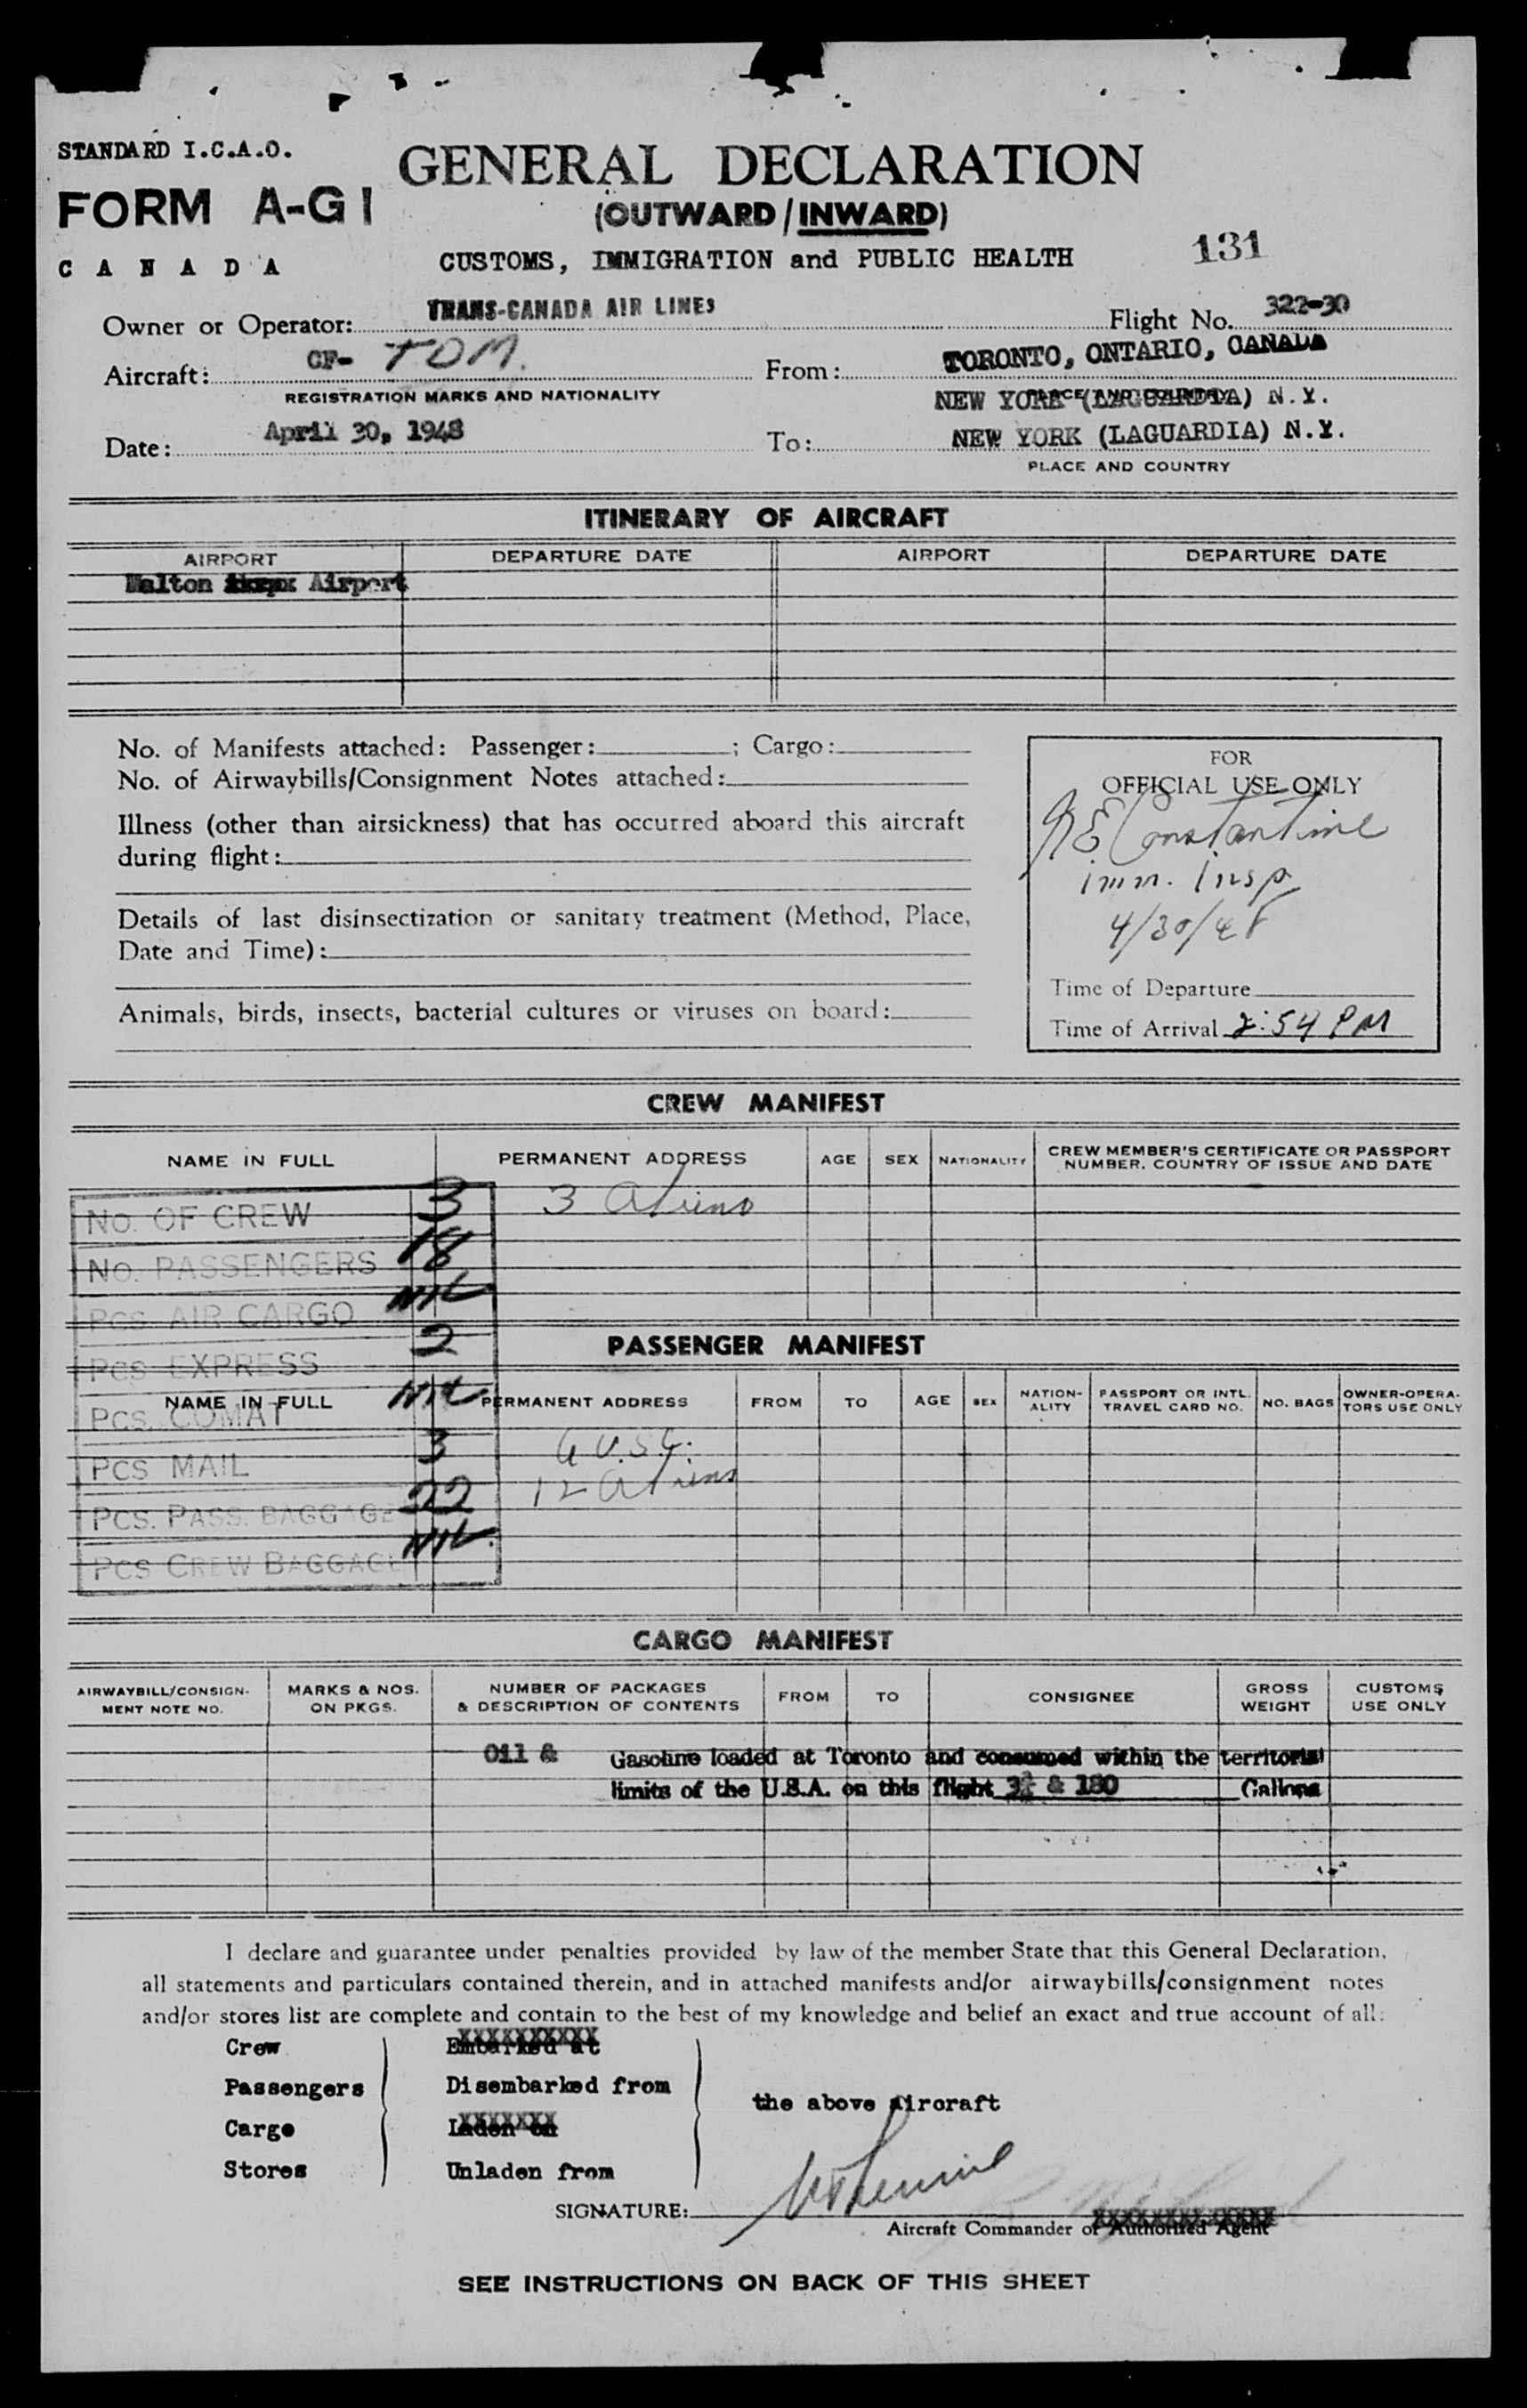 STANDARD I.C.A.O.
GENERAL DECLARATION
FORM A-G1
(OUTWARD/INWARD)
CANADA
CUSTOMS, IMMIGRATION and PUBLIC HEALTH
131
Owner or Operator: TRANS-CANADA AIR LINES
Flight No. 322-30
Aircraft: CF- TOM.
From: TORONTO, ONTARIO, CANADA
REGISTRATION MARKS AND NATIONALITY
NEW YORK (LAGUARDIA) N.Y.
Date: April 30, 1948
To: NEW YORK (LAGUARDIA) N.Y.
PLACE AND COUNTRY
ITINERARY OF AIRCRAFT
AIRPORT DEPARTURE DATE AIRPORT DEPARTURE DATE
Malton Airport
No. of Manifests attached: Passenger: ; Cargo:
No. of Airwaybills/Consignment Notes attached:
Illness (other than airsickness) that has occurred aboard this aircraft
during flight:
Details of last disinsectization or sanitary treatment (Method, Place,
Date and Time):
Animals, birds, insects, bacterial cultures or viruses on board:
FOR
OFFICIAL USE ONLY
Constantine
imm. Insp
4/30/48
Time of Departure
Time of Arrival 2:54 PM
CREW MANIFEST
NAME IN FULL PERMANENT ADDRESS AGE SEX NATIONALITY CREW MEMBER'S CERTIFICATE OR PASSPORT
NUMBER, COUNTRY OF ISSUE AND DATE
No. OF CREW 3
3 Aliens
No. PASSENGERS 18
PCS AIR CARGO NIL
PCS EXPRESS 2
PCS. COMAT NIL
PCS MAIL 3
PCS. PASS. BAGGAGE 22
PCS CREW BAGGAGE NIL
PASSENGER MANIFEST
NAME IN FULL PERMANENT ADDRESS FROM TO AGE SEX NATION-
ALITY PASSPORT OR INTL.
TRAVEL CARD NO. NO. BAGS OWNER-OPERA-
TORS USE ONLY
U.S.C.
12 Aliens
CARGO MANIFEST
AIRWAYBILL/CONSIGN-
MENT NOTE NO. MARKS & NOS.
ON PKGS. NUMBER OF PACKAGES
& DESCRIPTION OF CONTENTS FROM TO CONSIGNEE GROSS
WEIGHT CUSTOMS
USE ONLY
Oil & Gasoline loaded at Toronto and consumed within the territorial
limits of the U.S.A. on this flight & 180 Gallons
I declare and guarantee under penalties provided by law of the member State that this General Declaration,
all statements and particulars contained therein, and in attached manifests and/or airwaybills/consignment notes
and/or stores list are complete and contain to the best of my knowledge and belief an exact and true account of all:
Crew Embarked at
Passengers Disembarked from
the above aircraft
Cargo Laden on
Stores Unladen from
SIGNATURE:
Aircraft Commander or Authorized Agent
SEE INSTRUCTIONS ON BACK OF THIS SHEET